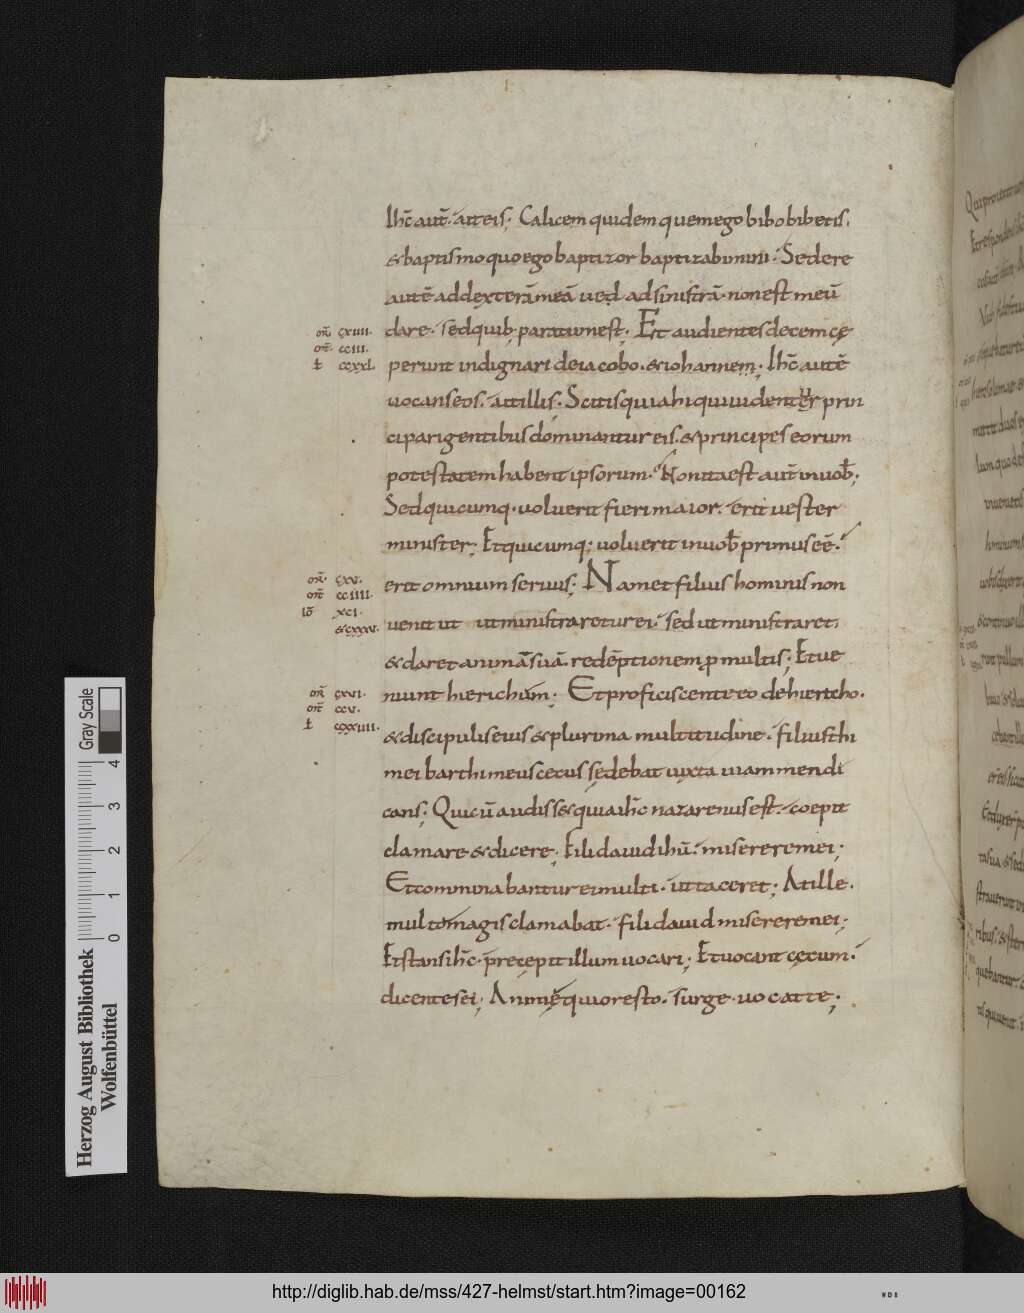 Ihc̄ aut̄. ait eis; Calicem quidem quem ego bibo bibetis.
& baptismo quo ego baptizor baptizabimini. Sedere
autē ad dexterā meā ued̨ ad sinistrā. non est meū
dare. sed quib; paratum est; Et audientes decem cę
perunt indignari de iacobo. & iohannem; Ihc̄ autē
uocans eos. ait illis; Scitis quia hi qui uidentur prin
cipari gentibus dominantur eis. & principes eorum
potestatem habent ipsorum. Non ita est aut̄ in uob̄;
Sed quicumq. uoluerit fieri maior. erit uester
minister; Et quicumq; uoluerit in uob̄ primus eē.
erit omnium seruus; Nam et filius hominis non
uenit ut ministraretur ei. sed ut ministraret;
& daret animā suā. redēptionem p multis; Et ue
niunt hierichum; Et proficiscente eo de hiericho.
& discipulis eius & plurima multitudine. filius thi
mei barthimeus cecus sedebat iuxta uiam mendi
cans; Qui cū audiss& quia ihc̄ nazarenus est. coepit
clamare & dicere; Fili dauid ihū. miserere mei;
Et comminabantur ei multi. ut taceret; At ille.
multo magis clamabat. fili dauid miserere mei;
Et stans ihc̄. precepit illum uocari; Et uocant cęcum.
dicentes ei; Animęquior esto. surge. uocat te;
om̄ cxiiii.
om̄ cciii.
Ł ccxxl.
om̄ cxv.
om̄ cciiii.
iō xci.
&cxxxv.
om̄ cxvi.
om̄ ccv.
Ł ccxxiiii.
Gray Scale
0 1 2 3 4
Herzog August Bibliothek
Wolfenbüttel
http://diglib.hab.de/mss/427-helmst/start.htm?image=00162